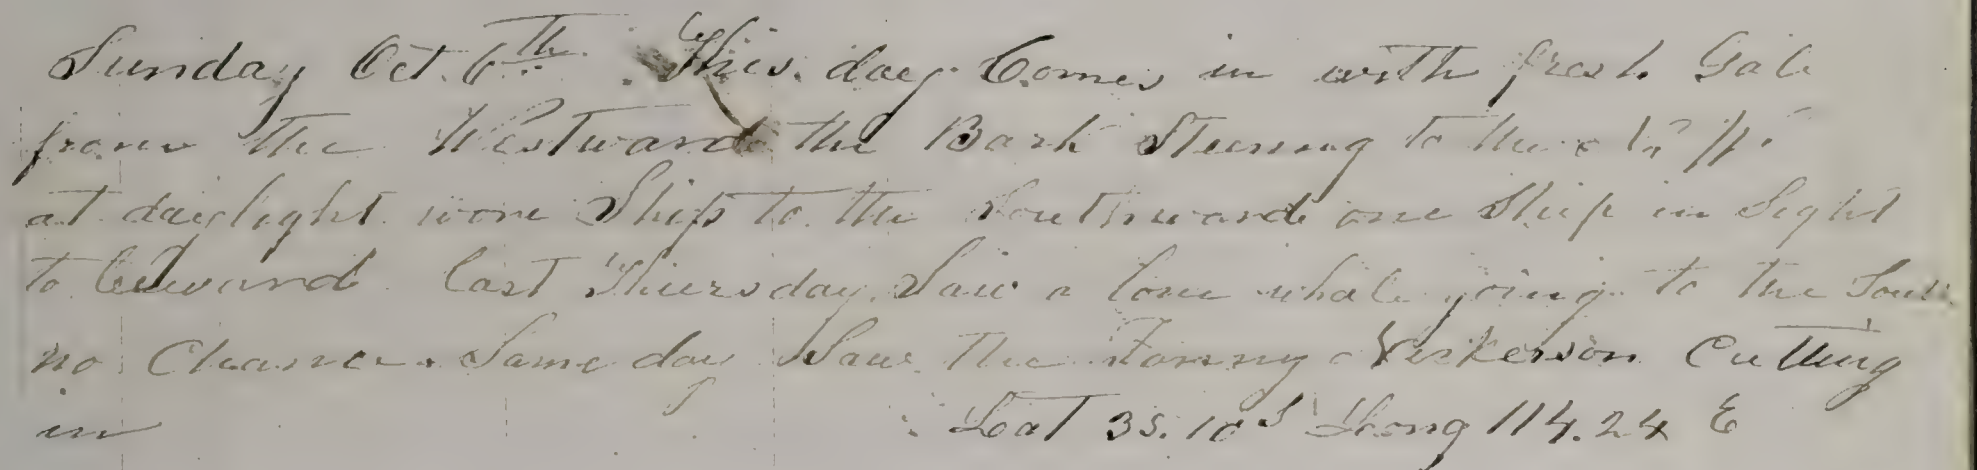 Sunday Oct. 6th This day Comes in with fresh Gale
from the Westward the Bark Steering to the
at daylight wore Ship to the Southward one Ship in Sight
to Leward last Thursday Saw a lone whale going to the
no Chance. Same day Saw the Fanny Nickerson Cutting
in Lat 35.10 S Long 114.24 E